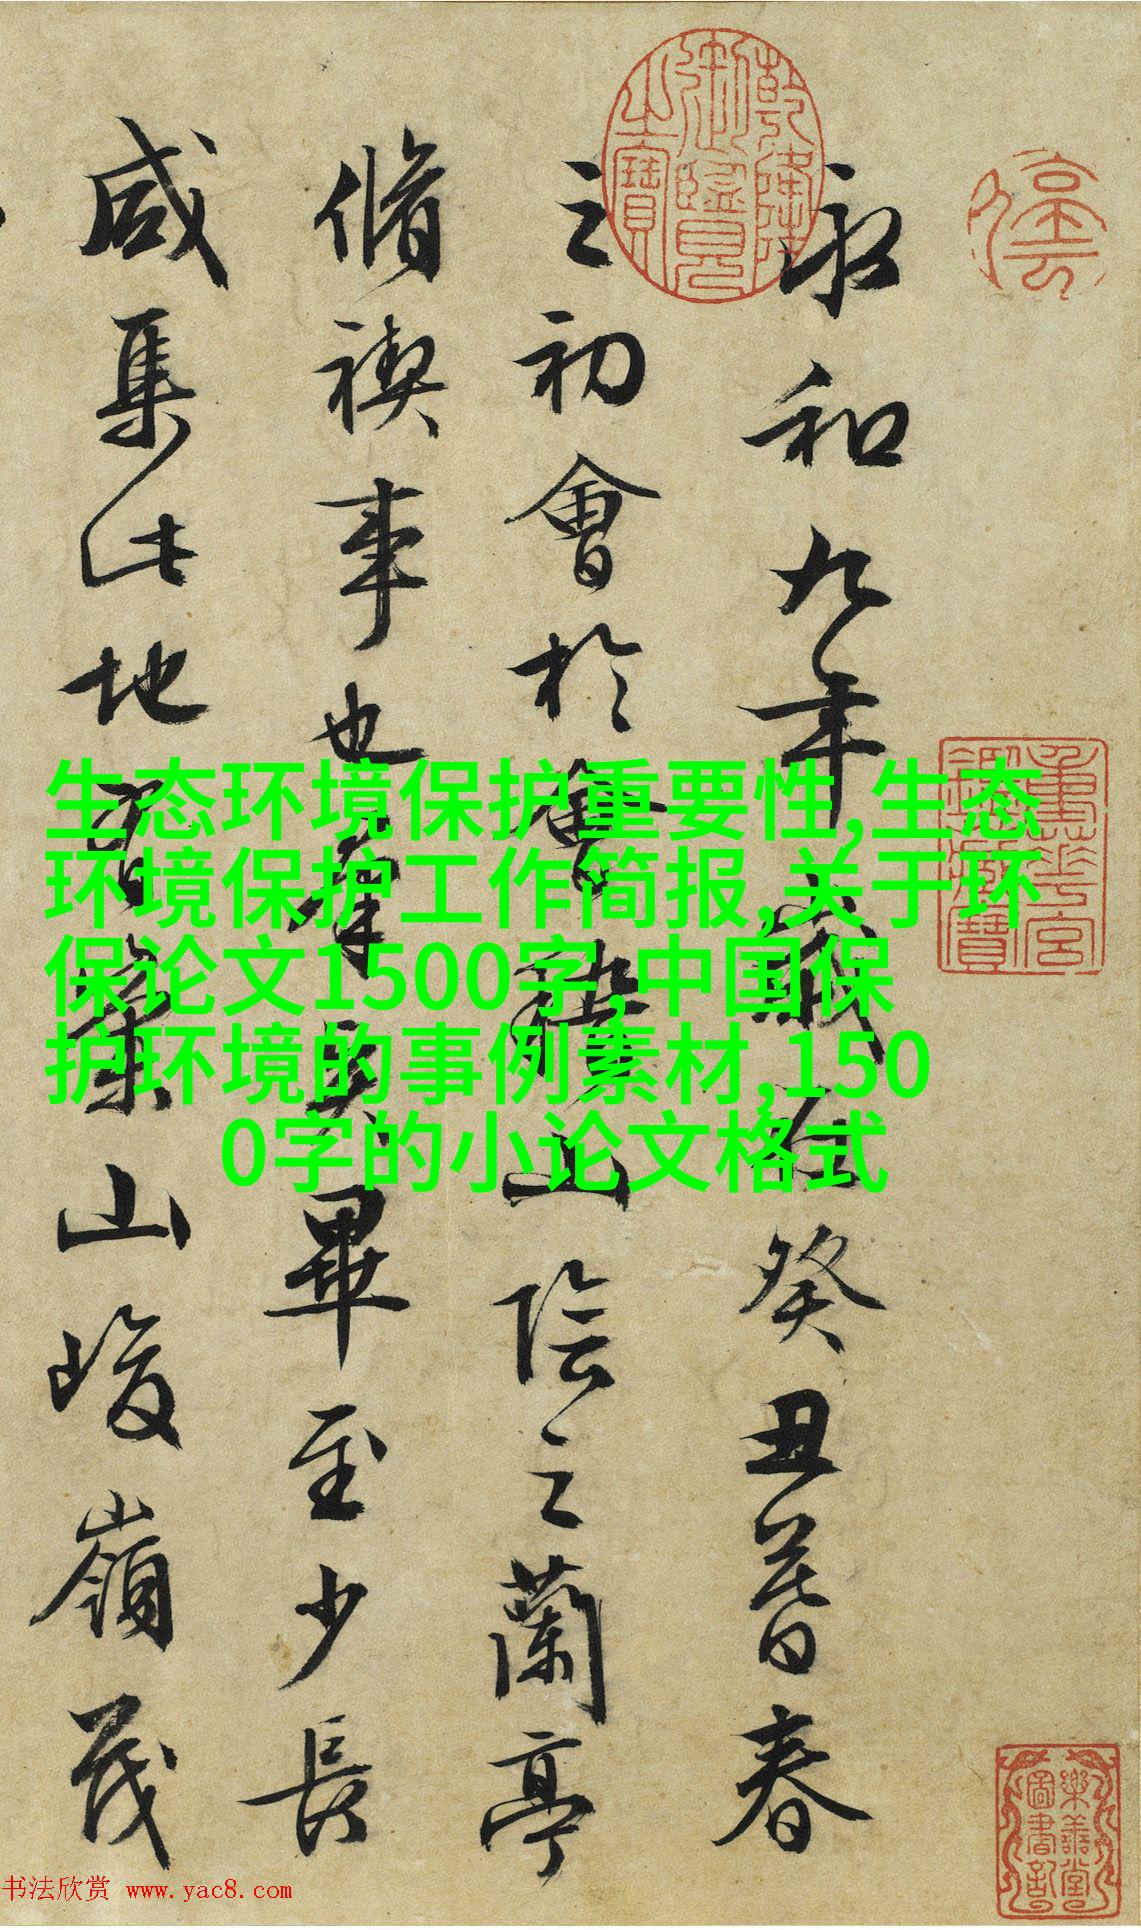 永和九年歲在癸丑暮春
之初會於會稽山陰之蘭亭
脩禊事也羣賢畢至少長
咸集此地崇山峻嶺茂
生态环境保护重要性,生态
环境保护工作简报,关于环
保论文1500字,中国保
护环境的事例素材,150
0字的小论文格式
乾隆御覽之寶
樂善堂圖書記
书法欣赏 www.yac8.com